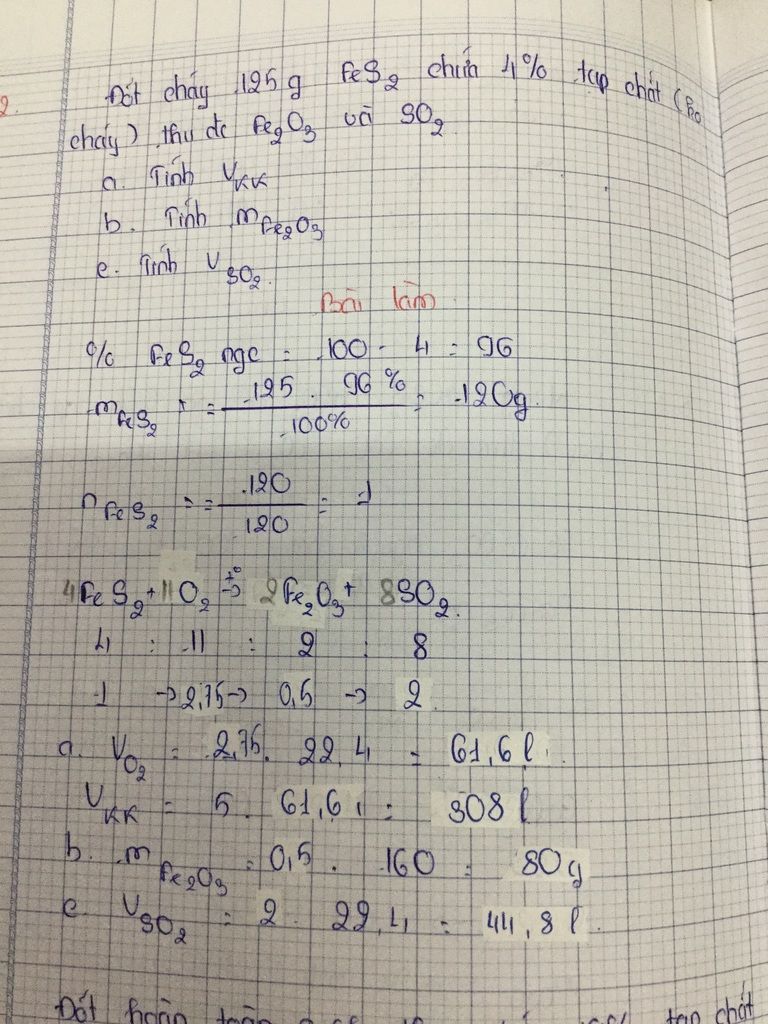 2.
Đốt cháy 125g FeS2 chứa 4% tạp chất (ko
cháy) thu đc Fe2O3 và SO2.
a. Tính VKK
b. Tính mFe2O3
c. Tính VSO2.
Bài làm
% FeS2 ngc = 100 - 4 = 96
mFeS2 = 125 . 96% / 100% = 120g.
nFeS2 = 120 / 120 = 1
4FeS2 + 11O2 t°→ 2Fe2O3 + 8SO2.
4 : 11 : 2 : 8
1 → 2,75 → 0,5 → 2
a. VO2 = 2,75. 22,4 = 61,6 l.
VKK = 5. 61,6 = 308 l
b. mFe2O3 = 0,5. 160 = 80g
c. VSO2 = 2. 22,4 = 44,8 l.
Đốt hoàn toàn tạp chất